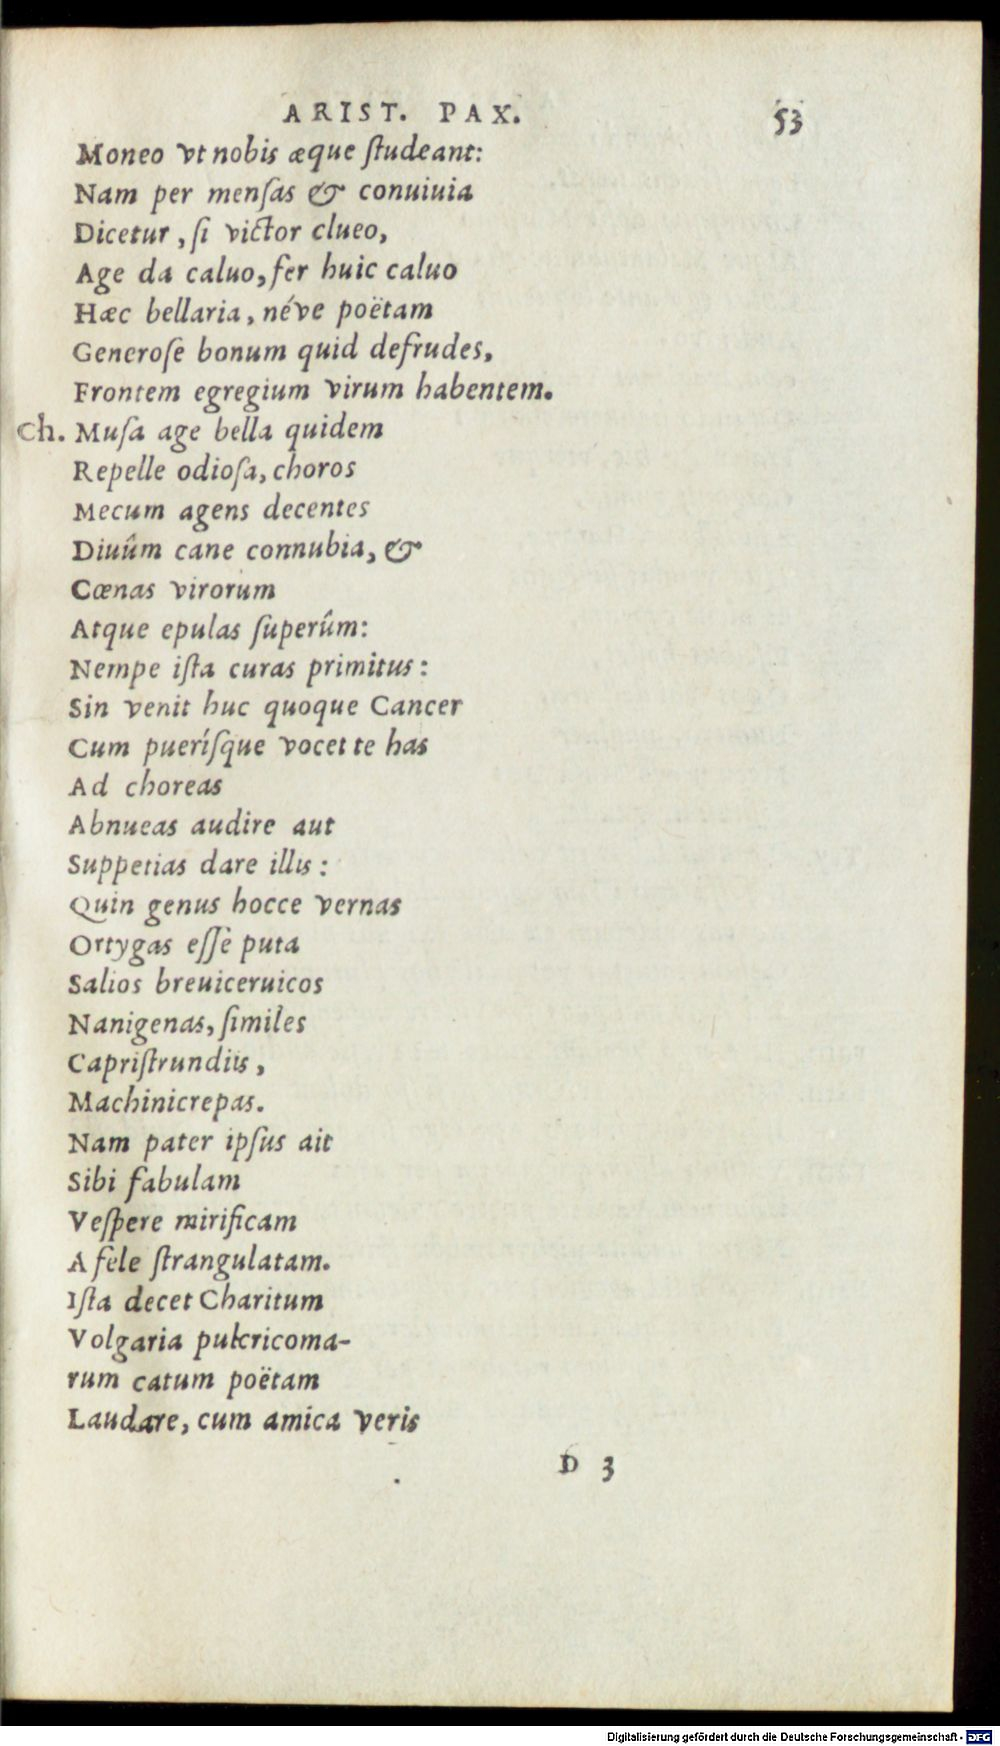 ARIST. PAX. 53
Moneo vt nobis æque ſtudeant:
Nam per menſas & conuiuia
Dicetur, ſi victor clueo,
Age da caluo, fer huic caluo
Hæc bellaria, néve poëtam
Generoſe bonum quid defrudes,
Frontem egregium virum habentem.
Ch. Muſa age bella quidem
Repelle odioſa, choros
Mecum agens decentes
Diuûm cane connubia, &
Cœnas virorum
Atque epulas ſuperûm:
Nempe iſta curas primitus:
Sin venit huc quoque Cancer
Cum pueríſque vocet te has
Ad choreas
Abnueas audire aut
Suppetias dare illis:
Quin genus hocce vernas
Ortygas eſſe puta
Salios breuiceruicos
Nanigenas, ſimiles
Capriſtrundiis,
Machinicrepas.
Nam pater ipſus ait
Sibi fabulam
Veſpere mirificam
A fele ſtrangulatam.
Iſta decet Charitum
Volgaria pulcricoma-
rum catum poëtam
Laudare, cum amica veris
D 3
Digitalisierung gefördert durch die Deutsche Forschungsgemeinschaft - DFG